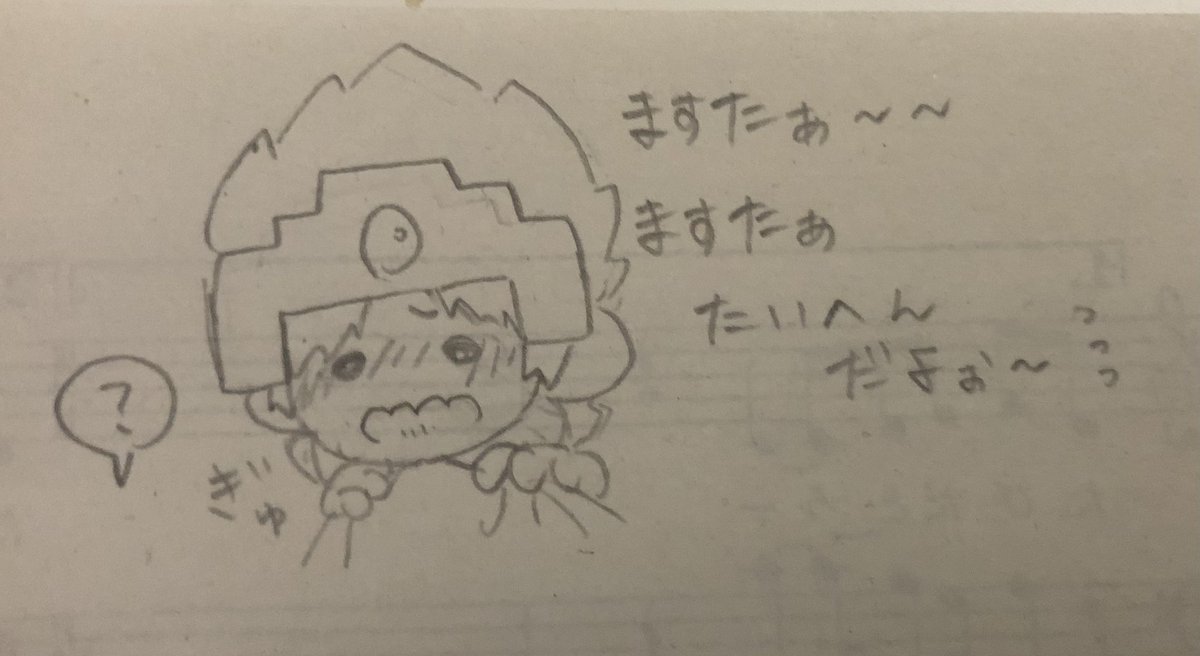 ますたぁ～～
ますたぁ
たいへん
だよぉ～ っっっ
?
ぎゅ